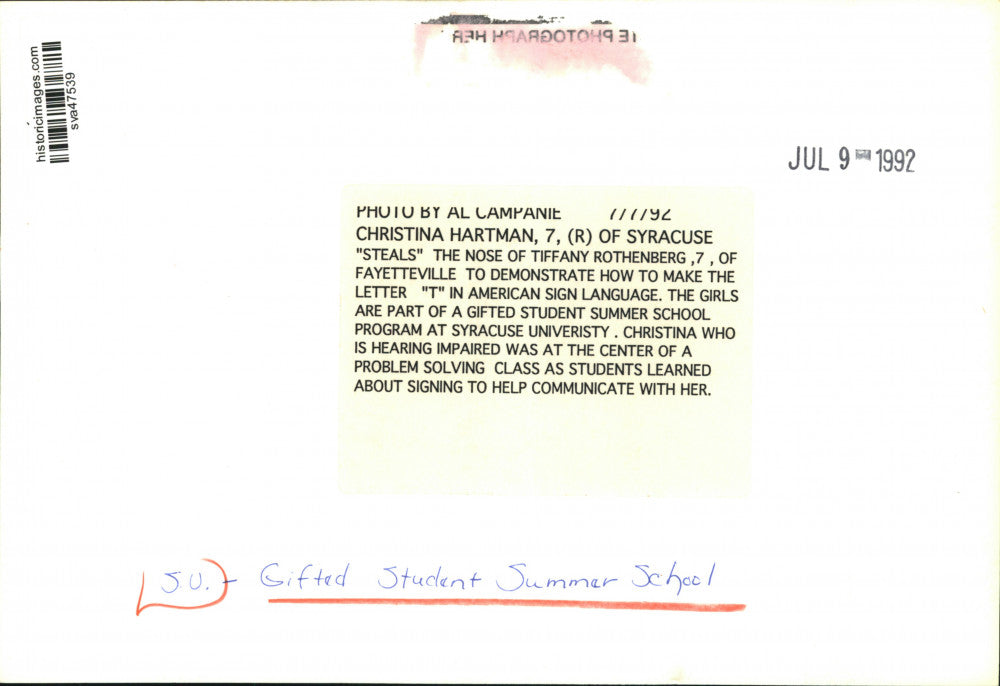 historicimages.com
sva47539
TE PHOTOGRAPH HER
JUL 9 1992
PHOTO BY AL CAMPANIE 7/7/92
CHRISTINA HARTMAN, 7, (R) OF SYRACUSE
"STEALS" THE NOSE OF TIFFANY ROTHENBERG ,7 , OF
FAYETTEVILLE TO DEMONSTRATE HOW TO MAKE THE
LETTER "T" IN AMERICAN SIGN LANGUAGE. THE GIRLS
ARE PART OF A GIFTED STUDENT SUMMER SCHOOL
PROGRAM AT SYRACUSE UNIVERISTY . CHRISTINA WHO
IS HEARING IMPAIRED WAS AT THE CENTER OF A
PROBLEM SOLVING CLASS AS STUDENTS LEARNED
ABOUT SIGNING TO HELP COMMUNICATE WITH HER.
S.U. - Gifted Student Summer School